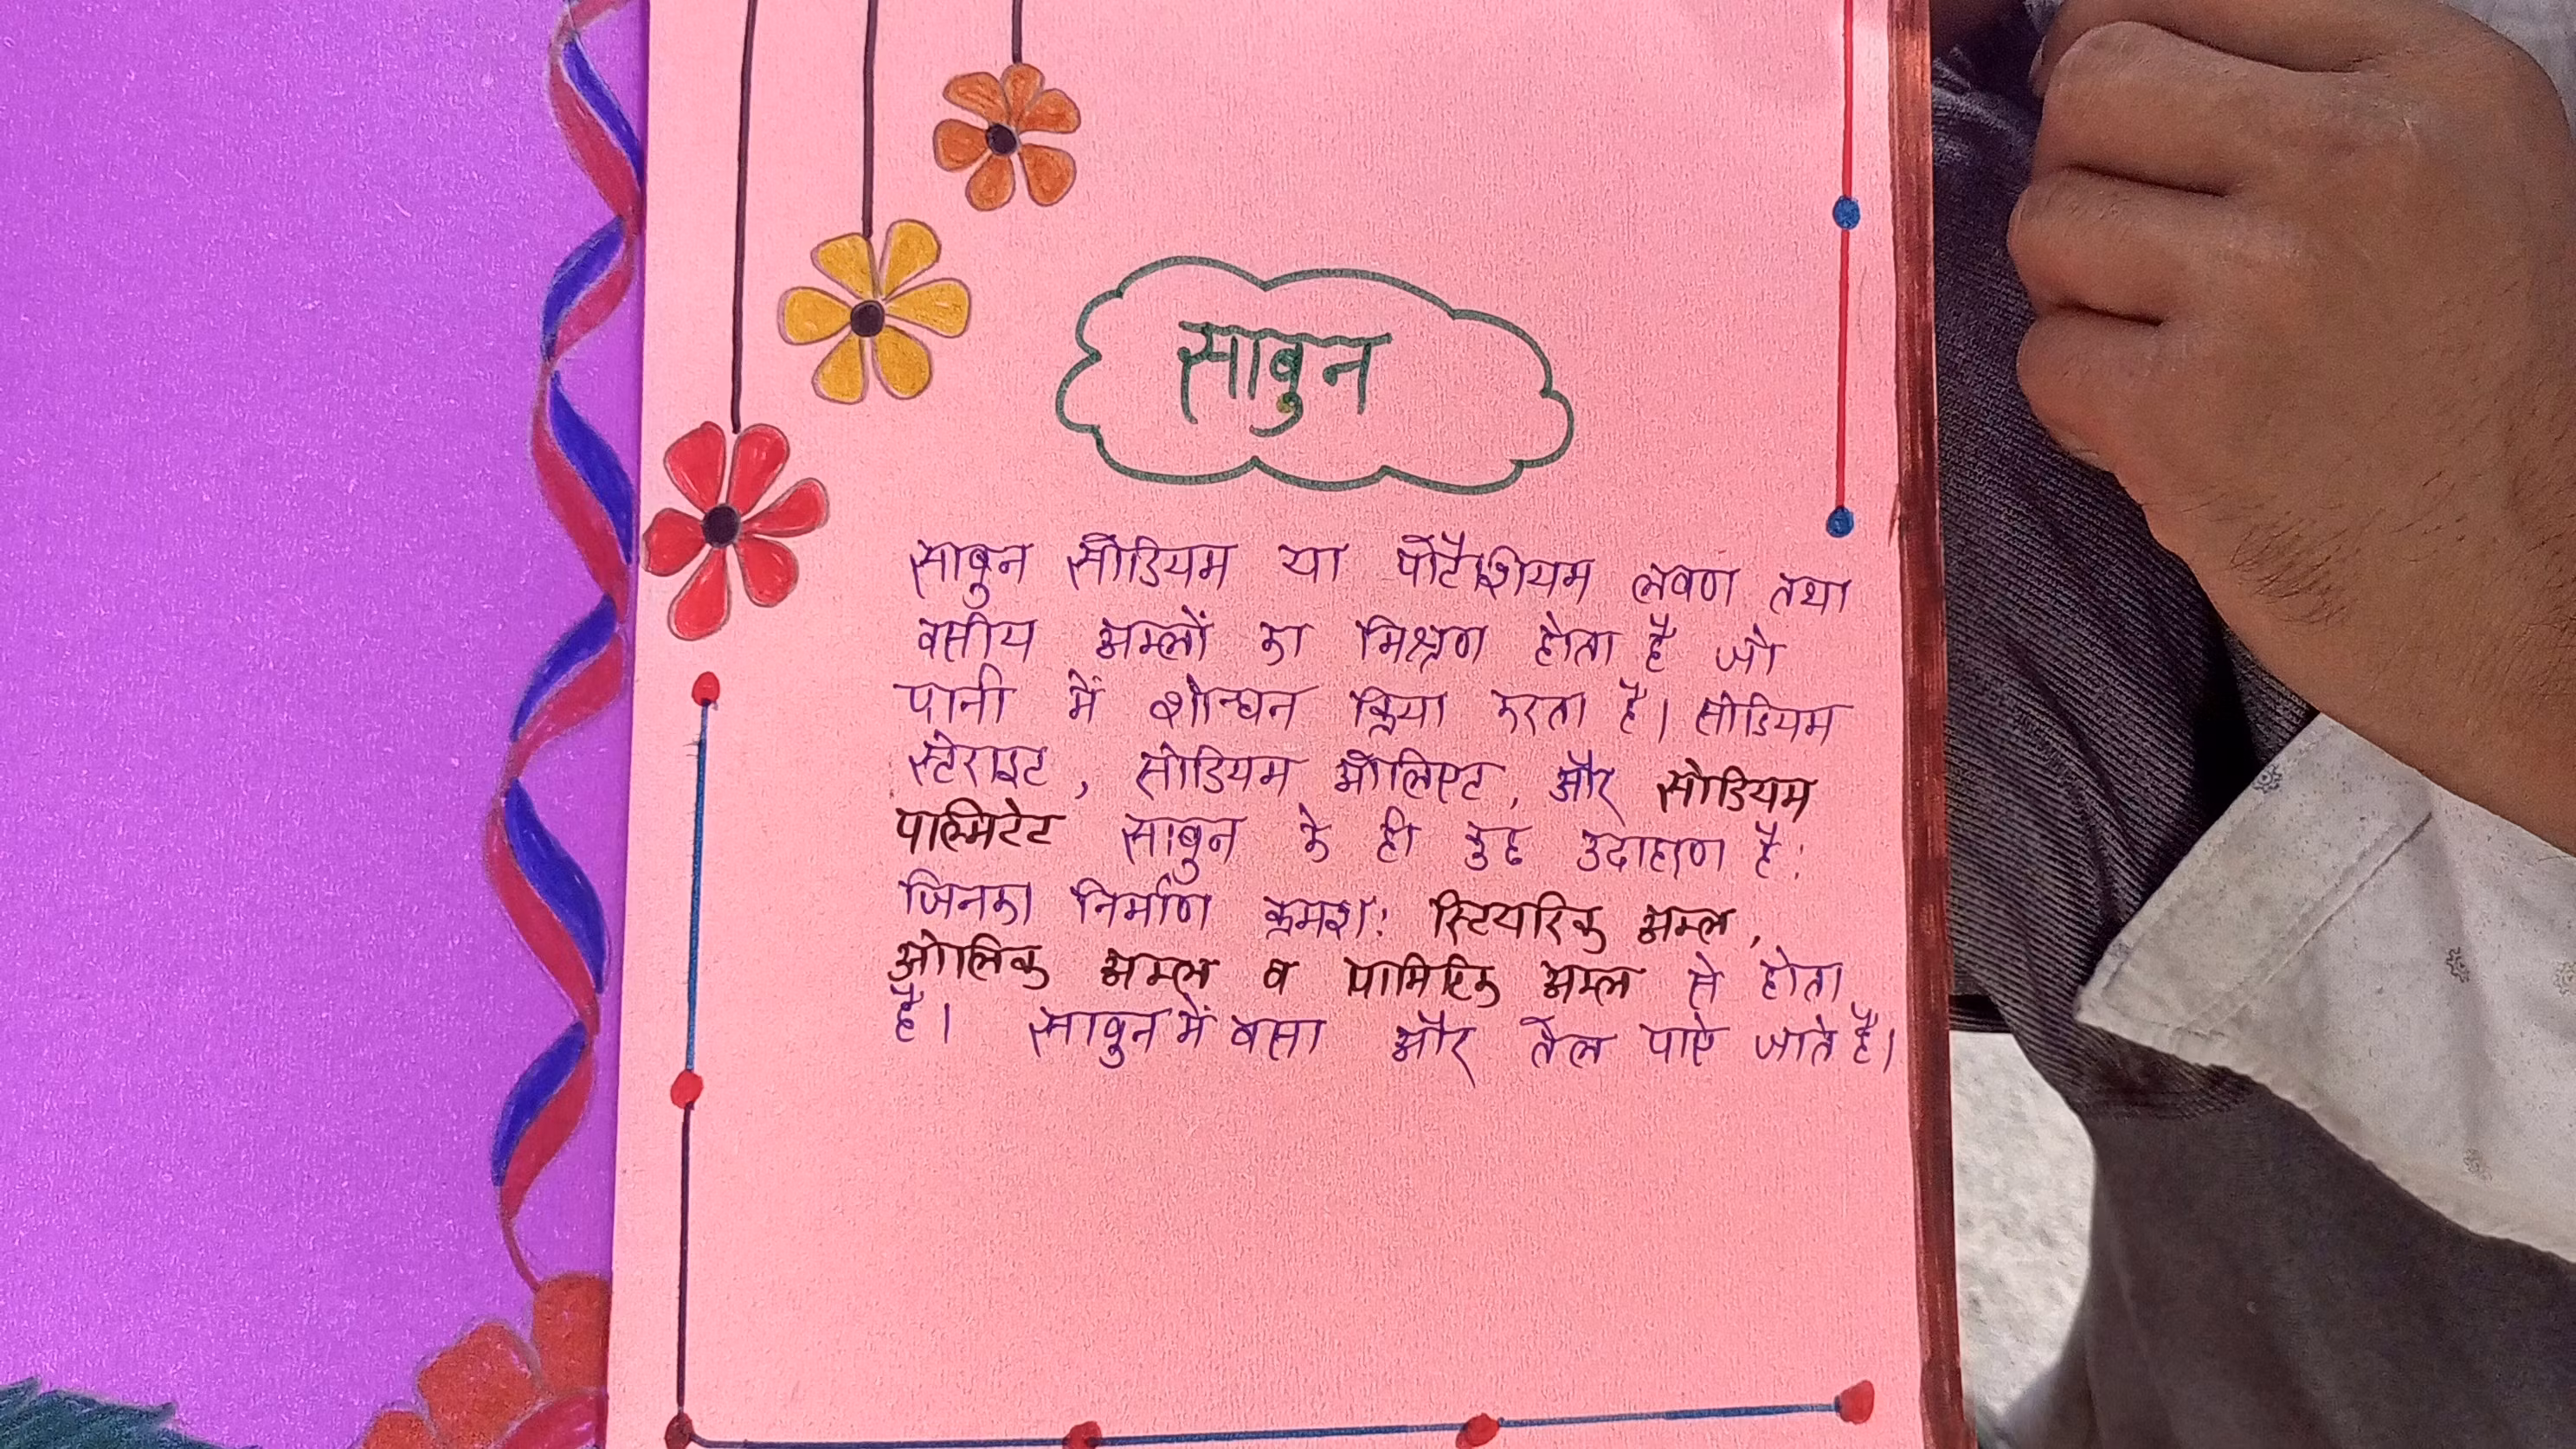 साबुन
साबुन सोडियम या पोटैशियम लवण तथा
वसीय अम्लों का मिश्रण होता है जो
पानी में शोन्धन क्रिया करता है। सोडियम
स्टेराइट, सोडियम ओलिएट, और सोडियम
पाल्मिटेट साबुन के ही कुछ उदाहरण है:
जिनका निर्माण क्रमश: स्टियरिक अम्ल,
ओलिक अम्ल व पामिटिक अम्ल से होता
है। साबुन में वसा और तेल पाऐ जाते है।